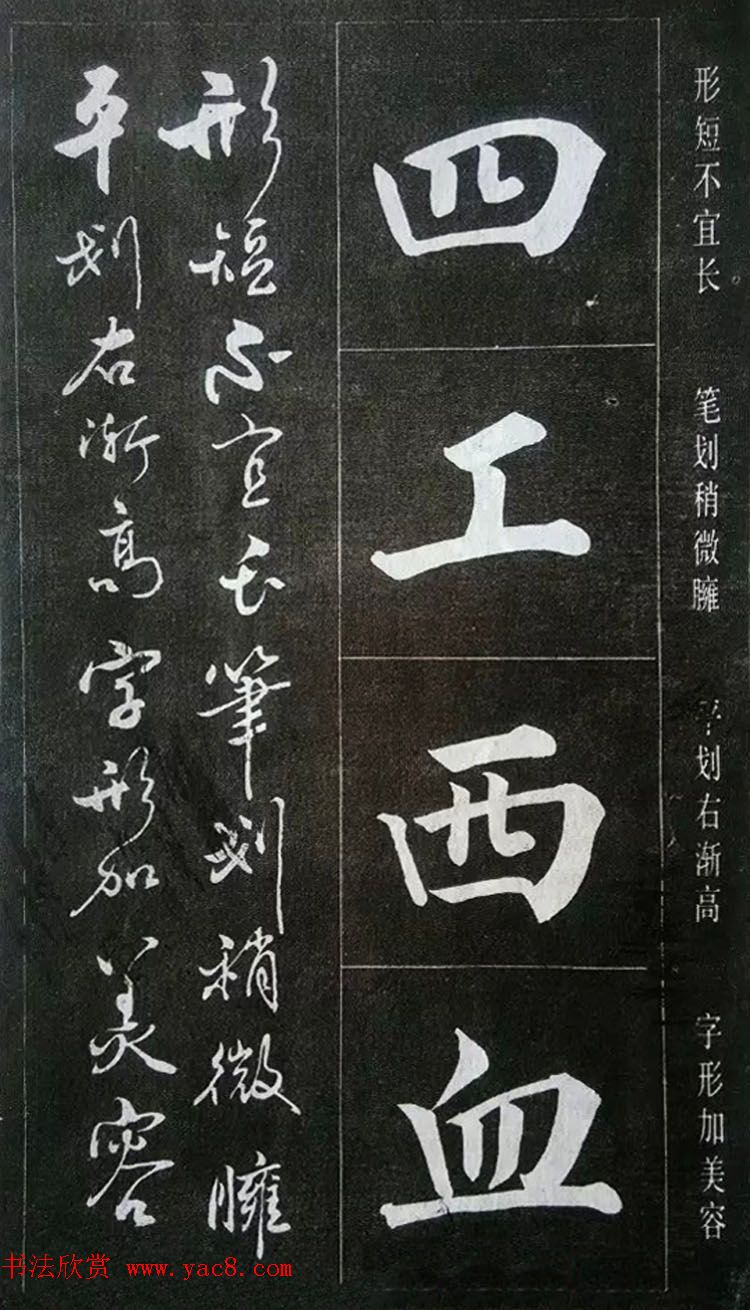 形短不宜长 笔划稍微臃 平划右渐高 字形加美容
四工西血
形短不宜长筆划稍微臃
平划右渐高字形加美容
书法欣赏 www.yac8.com